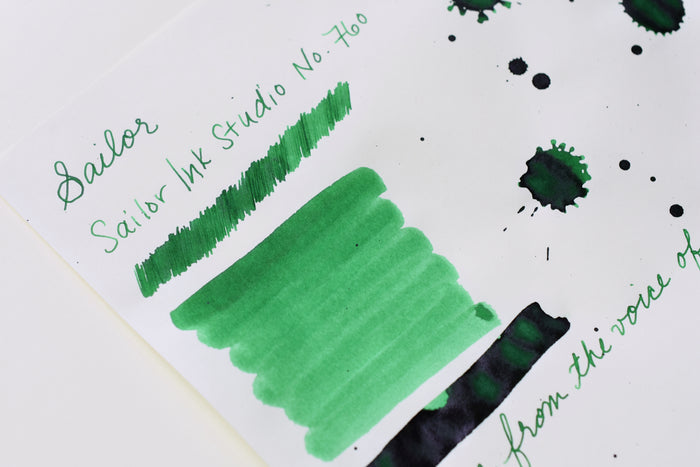 Sailor
Sailor Ink Studio No. 760
from the voice of